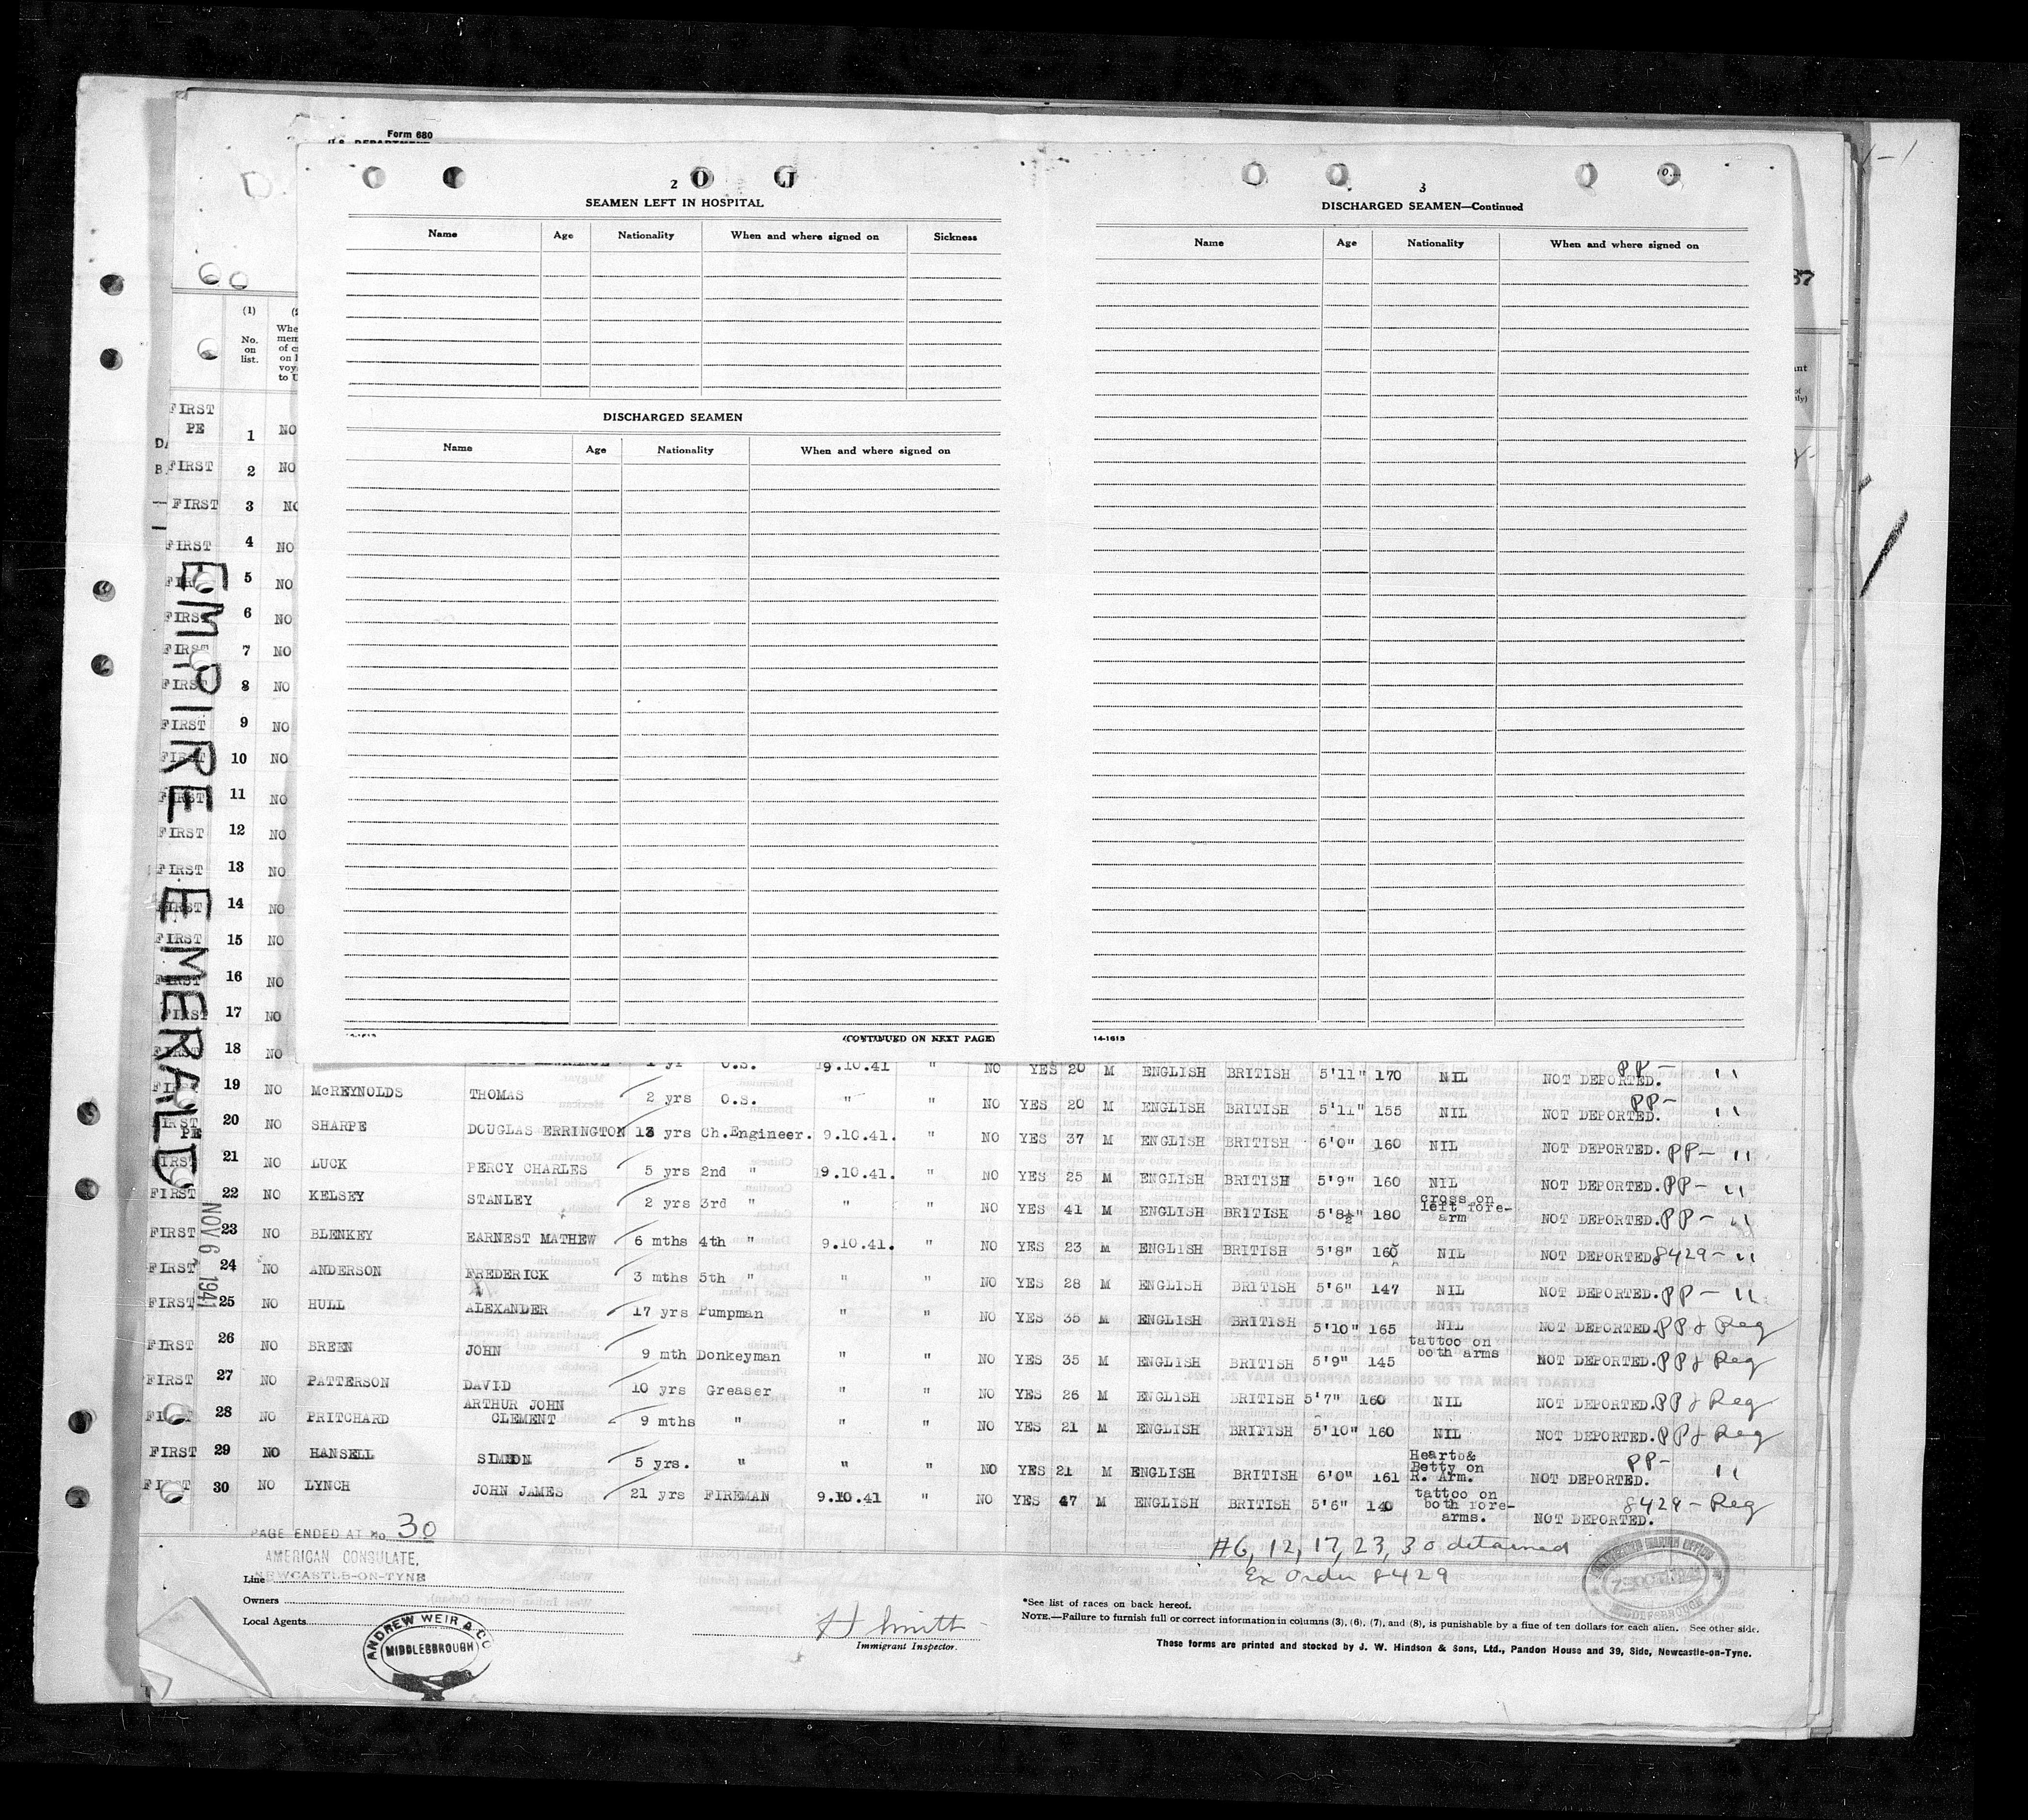 Form 680
2
SEAMEN LEFT IN HOSPITAL
Name Age Nationality When and where signed on Sickness
DISCHARGED SEAMEN
Name Age Nationality When and where signed on
(CONTINUED ON NEXT PAGE)
3
DISCHARGED SEAMEN—Continued
Name Age Nationality When and where signed on
14-1615
(1)
No.
on
list.
FIRST
PE 1 NO
FIRST 2 NO
FIRST 3 NO
FIRST 4 NO
5 NO
FIRST 6 NO
FIRST 7 NO
FIRST 8 NO
FIRST 9 NO
FIRST 10 NO
FIRST 11 NO
FIRST 12 NO
FIRST 13 NO
FIRST 14 NO
FIRST 15 NO
FIRST 16 NO
FIRST 17 NO
FIRST 18 NO 1 yr O.S. 19.10.41 " NO YES 20 M ENGLISH BRITISH 5'11" 170 NIL NOT DEPORTED. PP - "
19 NO McREYNOLDS THOMAS 2 yrs O.S. " " NO YES 20 M ENGLISH BRITISH 5'11" 155 NIL NOT DEPORTED. PP - "
FIRST PE 20 NO SHARPE DOUGLAS ERRINGTON 13 yrs Ch.Engineer. 9.10.41. " NO YES 37 M ENGLISH BRITISH 6'0" 160 NIL NOT DEPORTED. PP - "
FIRST 21 NO LUCK PERCY CHARLES 5 yrs 2nd " 19.10.41. " NO YES 25 M ENGLISH BRITISH 5'9" 160 NIL NOT DEPORTED. PP - "
FIRST 22 NO KELSEY STANLEY 2 yrs 3rd " " " NO YES 41 M ENGLISH BRITISH 5'8½" 180 cross on left fore-arm NOT DEPORTED. PP - "
FIRST 23 NO BLENKEY EARNEST MATHEW 6 mths 4th " 9.10.41. " NO YES 23 M ENGLISH BRITISH 5'8" 160 NIL NOT DEPORTED 8429 - "
FIRST 24 NO ANDERSON FREDERICK 3 mths 5th " " " NO YES 28 M ENGLISH BRITISH 5'6" 147 NIL NOT DEPORTED. PP - "
FIRST 25 NO HULL ALEXANDER 17 yrs Pumpman " " NO YES 35 M ENGLISH BRITISH 5'10" 165 NIL NOT DEPORTED. PP & Reg
FIRST 26 NO BREEN JOHN 9 mth Donkeyman " " NO YES 35 M ENGLISH BRITISH 5'9" 145 tattoo on both arms NOT DEPORTED. PP & Reg
FIRST 27 NO PATTERSON DAVID 10 yrs Greaser " " NO YES 26 M ENGLISH BRITISH 5'7" 160 NIL NOT DEPORTED. PP & Reg
FIRST 28 NO PRITCHARD ARTHUR JOHN CLEMENT 9 mths " " " NO YES 21 M ENGLISH BRITISH 5'10" 160 NIL NOT DEPORTED. PP & Reg
FIRST 29 NO HANSELL SIMON 5 yrs. " " " NO YES 21 M ENGLISH BRITISH 6'0" 161 Heart & Betty on R. Arm. NOT DEPORTED. PP - "
FIRST 30 NO LYNCH JOHN JAMES 21 yrs FIREMAN 9.10.41 " NO YES 47 M ENGLISH BRITISH 5'6" 140 tattoo on both fore-arms. NOT DEPORTED. 8429 - Reg
EMPIRE EMERALD
NOV 6 1941
PAGE ENDED AT No 30
AMERICAN CONSULATE,
NEWCASTLE-ON-TYNE
Line
Owners
Local Agents
ANDREW WEIR & CO
MIDDLESBROUGH
H Smith
Immigrant Inspector.
#6, 12, 17, 23, 30 detained
Ex Order 8429
MIDDLESBROUGH
*See list of races on back hereof.
NOTE.—Failure to furnish full or correct information in columns (3), (6), (7), and (8), is punishable by a fine of ten dollars for each alien. See other side.
These forms are printed and stocked by J. W. Hindson & Sons, Ltd., Pandon House and 39, Side, Newcastle-on-Tyne.